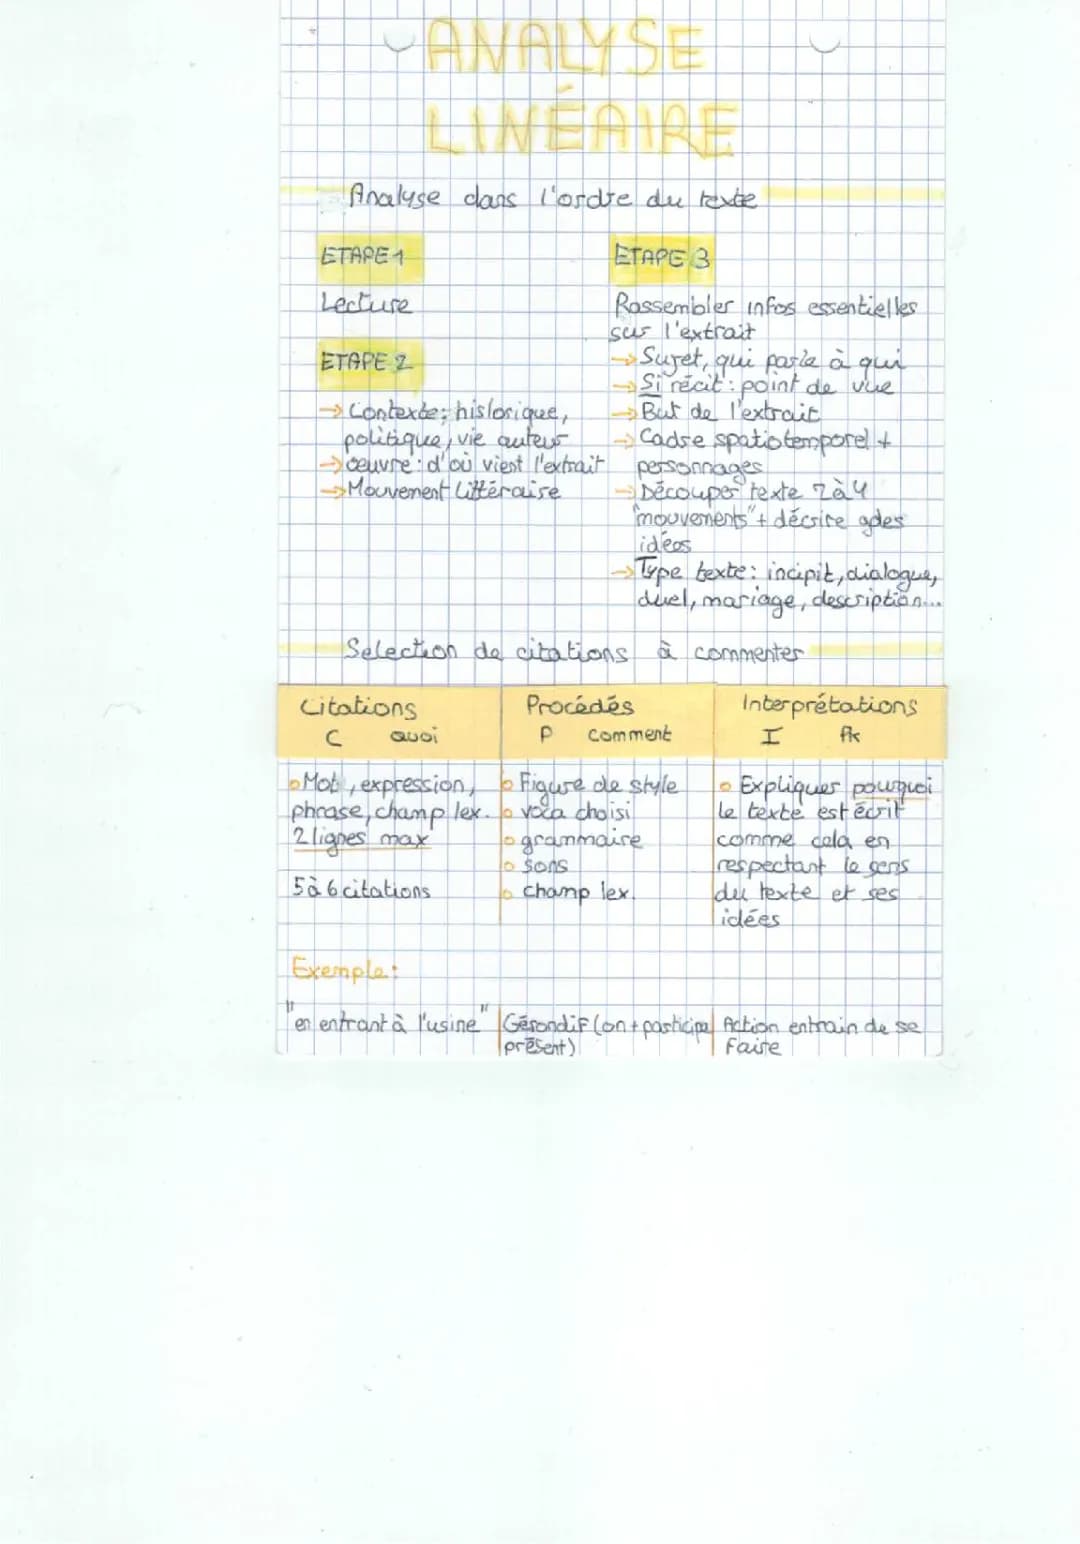 ANALYSE
LINÉAIRE
Analyse dans l'ordre du texte
ETAPE 1
Lecture
ETAPE 2
→ Contexte: historique,
politique, vie auteur
→ œuvre: d'où vient l'extrait
→ Mouvement littéraire
ETAPE 3
Rassembler infos essentielles
sur l'extrait
→ Sujet, qui parle à qui
→ Si récit: point de vue
→ But de l'extrait
→ Cadre spatiotemporel +
personnages
→ Découper texte 2 à 4
"mouvements" + décrire gdes
idées
→ Type texte: incipit, dialogue,
duel, mariage, description...
Selection de citations à commenter
Citations
C quoi
Procédés
P comment
Interprétations
I Pk
Mot, expression,
phrase, champ lex.
2 lignes max
5 à 6 citations
Figure de style
voca choisi
grammaire
sons
champ lex.
Expliquer pourquoi
le texte est écrit
comme cela en
respectant le sens
du texte et ses
idées
Exemple:
"en entrant à l'usine"
Gérondif (en + participe
présent)
Action entrain de se
faire